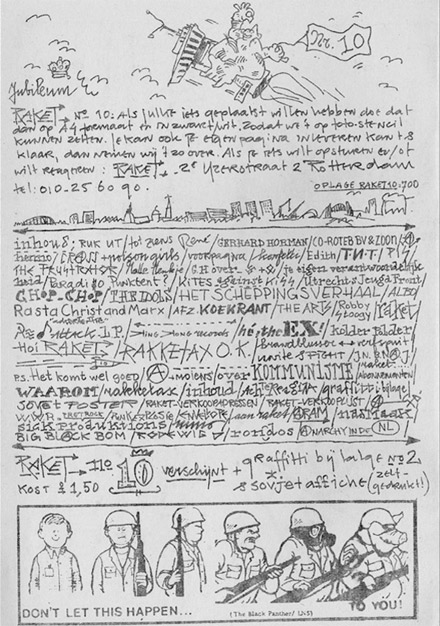 Nr. 10
Jubileum
RAKET No 10: Als jullie iets geplaatst willen hebben doe dat
dan op A4 formaat en in zwart/wit. Zodat we 't op foto-stencil
kunnen zetten. Je kan ook je eigen pagina inleveren kant &
klaar, dan nemen wij 't zo over. Als je iets wilt opsturen en/of
wilt reageren: RAKET 2e Yzerstraat 2 Rotterdam
tel: 010-25 60 90.
OPLAGE RAKET 10: 700
inhoud: RUK UT / tot ziens René / GERHARD HORMAN / CO-ROTEB BV & ZOON /
CRASS + poison girls / voorpagina / / Edith / T.N.T. /
THE FRUSTRATORS / / G.H over / je eigen verantwoordelijk
heid / Paradiso Punktent? / KITES against KISS / Utrechts Jeugd Front
CHOP-CHOP / THE DOLS / HET SCHEPPINGSVERHAAL / ALBO /
Rasta Christ and Marx / AFZ. KOEKRANT / THE ARTS / Robby stoogy / Raket
attack D.P. / Ding Dong records / hé, the EX! / kolder polder
Hoi RAKET / RAKKETAX O.K. / brandblusser verfspuit
unite & FIGHT / IN. en A
P.S. Het komt wel goed / A-moiers / over KOMMUNIJME / raket-abonnementen
WAAROM / rakketax / inhoud / / graffiti bijlage
SOVJET POSTER / RAKET-VERKOOPADRESSEN / RAKET-VERKOOPLIJST /
/ aan raket / RAM / nasmaak
sick produktions / nimo
BIG BLACK BOM / RODEWIG / rondos / ANARCHY IN DE NL
RAKET no 10 verschijnt + graffiti bijlage no 2
KOST f 1,50 & sovjet affiche (zelf-gedrukt!)
DON'T LET THIS HAPPEN...
(The Black Panther/ LNS)
TO YOU!